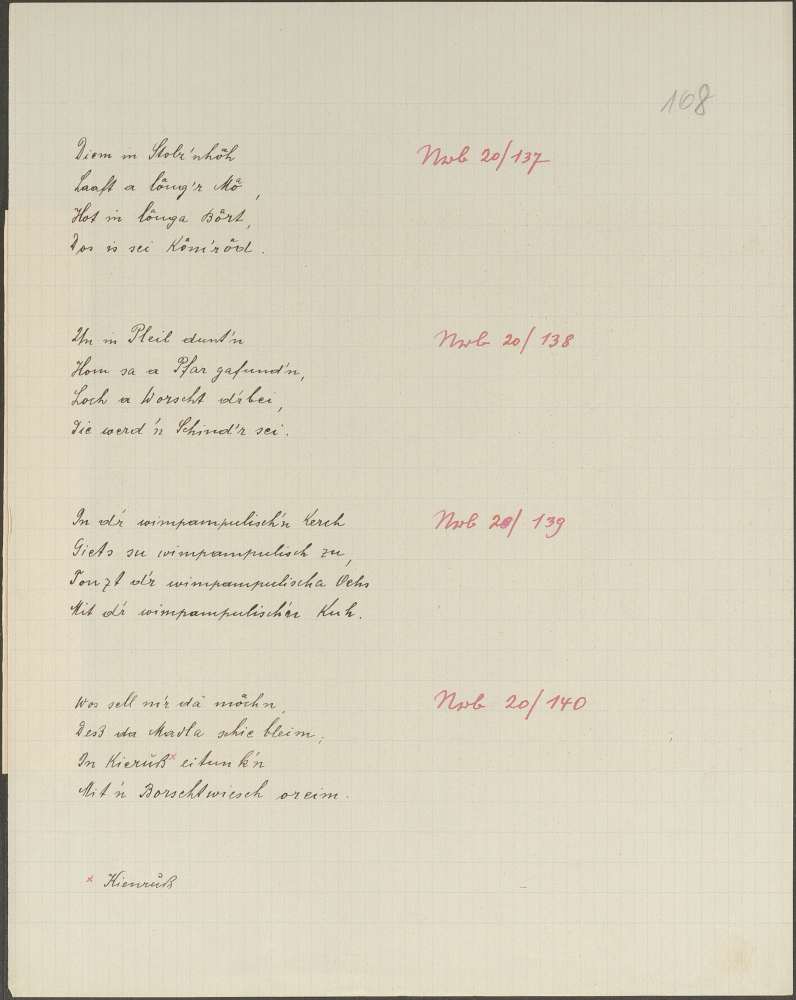 108
Diem in Stolz'nhöh
Laaft a lång'r Må,
Hot in långa Bårt,
Dos is sei Kåm'råd.
Nwb 20/137
Un in Pleil dunt'n
Hom sa a Pfar gafund'n,
Loch a Worscht dr'bei,
Die werd'n Schind'r sei.
Nwb 20/138
In d'r wimpampulisch'n Kerch
Giets su wimpampulisch zu,
Tonzt d'r wimpampulischa Ochs
Mit d'r wimpampulisch'n Kuh.
Nwb 20/139
Wos sell m'r då måchn,
Deß da Madla schie bleim;
In Kierůß* eitunk'n
Mit'n Borschtwiesch oreim.
Nwb 20/140
* Kienrůß